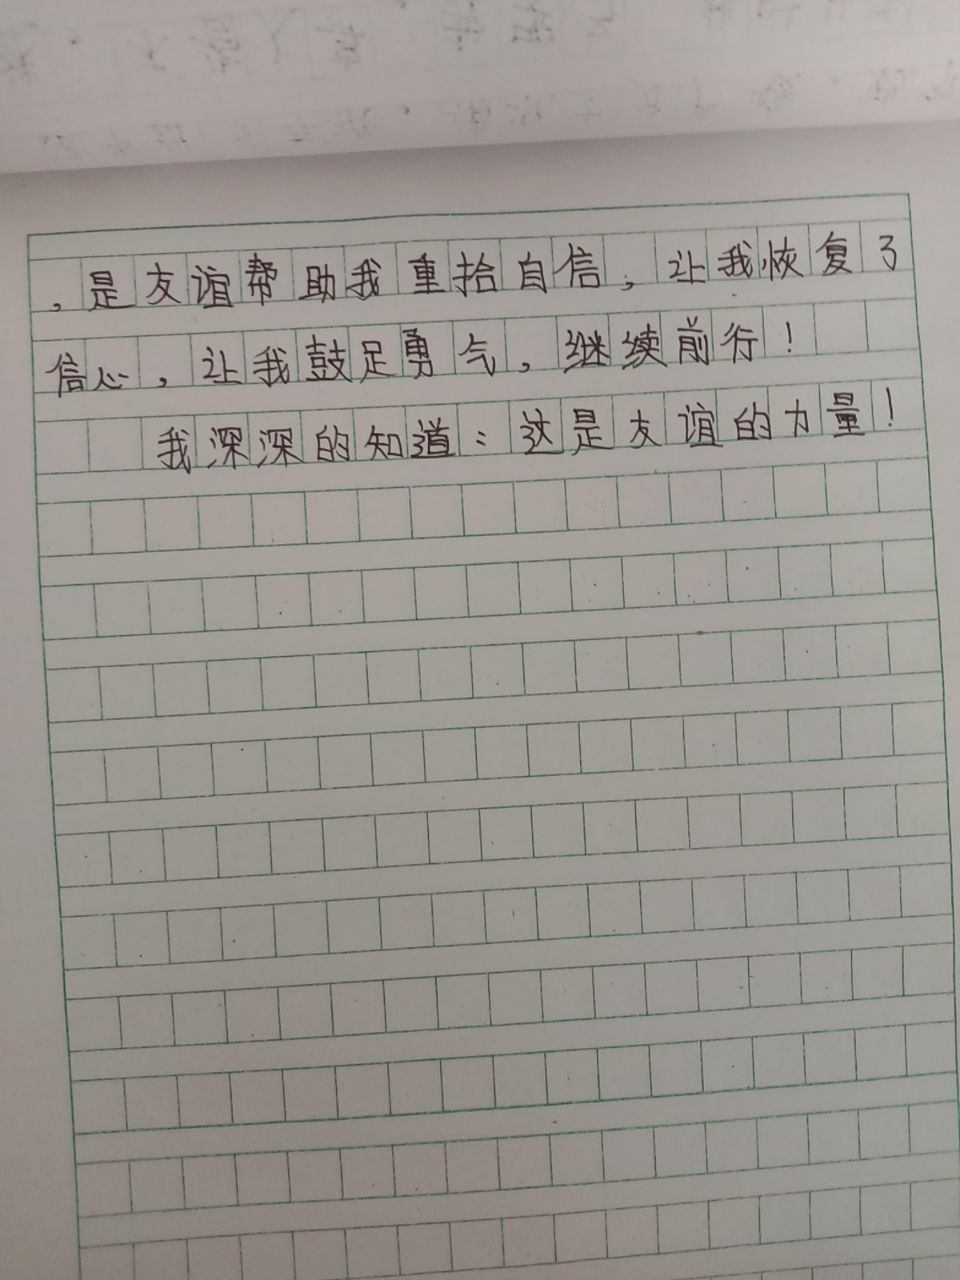 ，是友谊帮助我重拾自信，让我恢复了
信心，让我鼓足勇气，继续前行！
我深深的知道：这是友谊的力量！